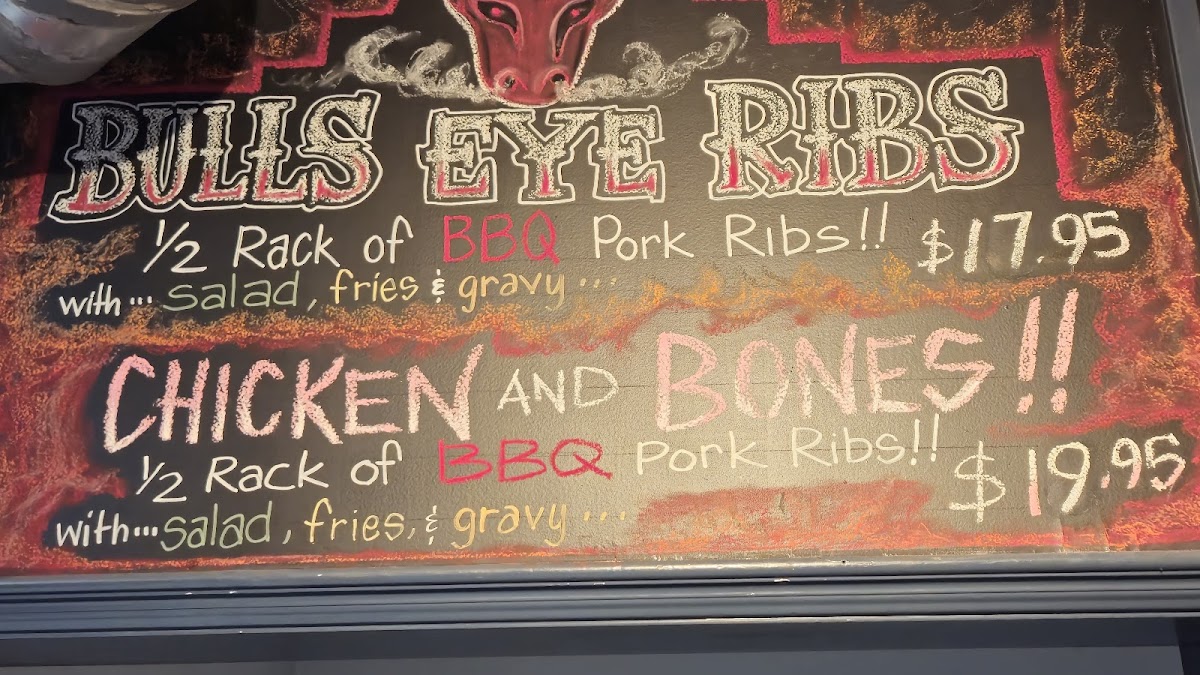 BULLS EYE RIBS
1/2 Rack of BBQ Pork Ribs!! $17.95
with... salad, fries & gravy...
CHICKEN AND BONES!!
1/2 Rack of BBQ Pork Ribs!! $19.95
with... salad, fries, & gravy...